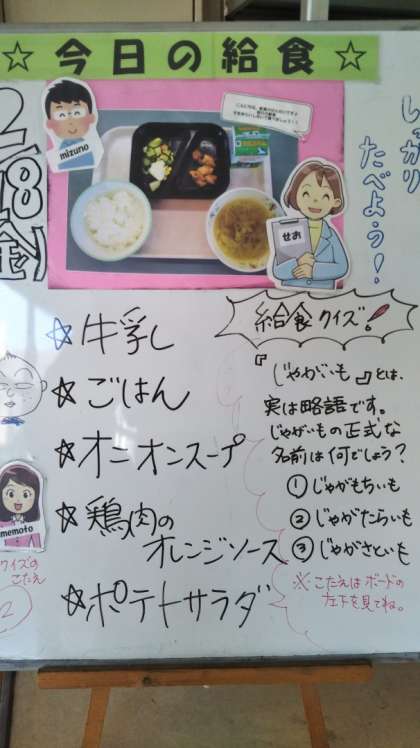 ☆今日の給食☆
2/18
(金)
しっかり
たべよう!
mizuno
せお
☆牛乳
☆ごはん
☆オニオンスープ
☆鶏肉の
オレンジソース
☆ポテトサラダ
memoto
クイズの
こたえ
2
給食クイズ!
『じゃがいも』とは、
実は略語です。
じゃがいもの正式な
名前は何でしょう?
①じゃがもちいも
②じゃがたらいも
③じゃがさといも
※こたえはボードの
左下を見てね。